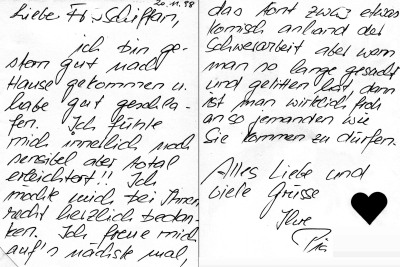 20.11.98
Liebe Fr. Schiffan,
ich bin ge-
stern gut nach
Hause gekommen u.
habe gut geschla-
fen. Ich fühle
mich innerlich noch
sensibel aber total
erleichtert!! Ich
möchte mich bei Ihnen
recht herzlich bedan-
ken. Ich freue mich
auf's nächste mal,
das tönt zwar etwas
komisch anhand der
Schwerarbeit aber wenn
man so lange gesucht
und gelitten hat, dann
ist man wirklich froh
an so jemanden wie
Sie kommen zu dürfen.
Alles Liebe und
viele Grüsse
Ihre